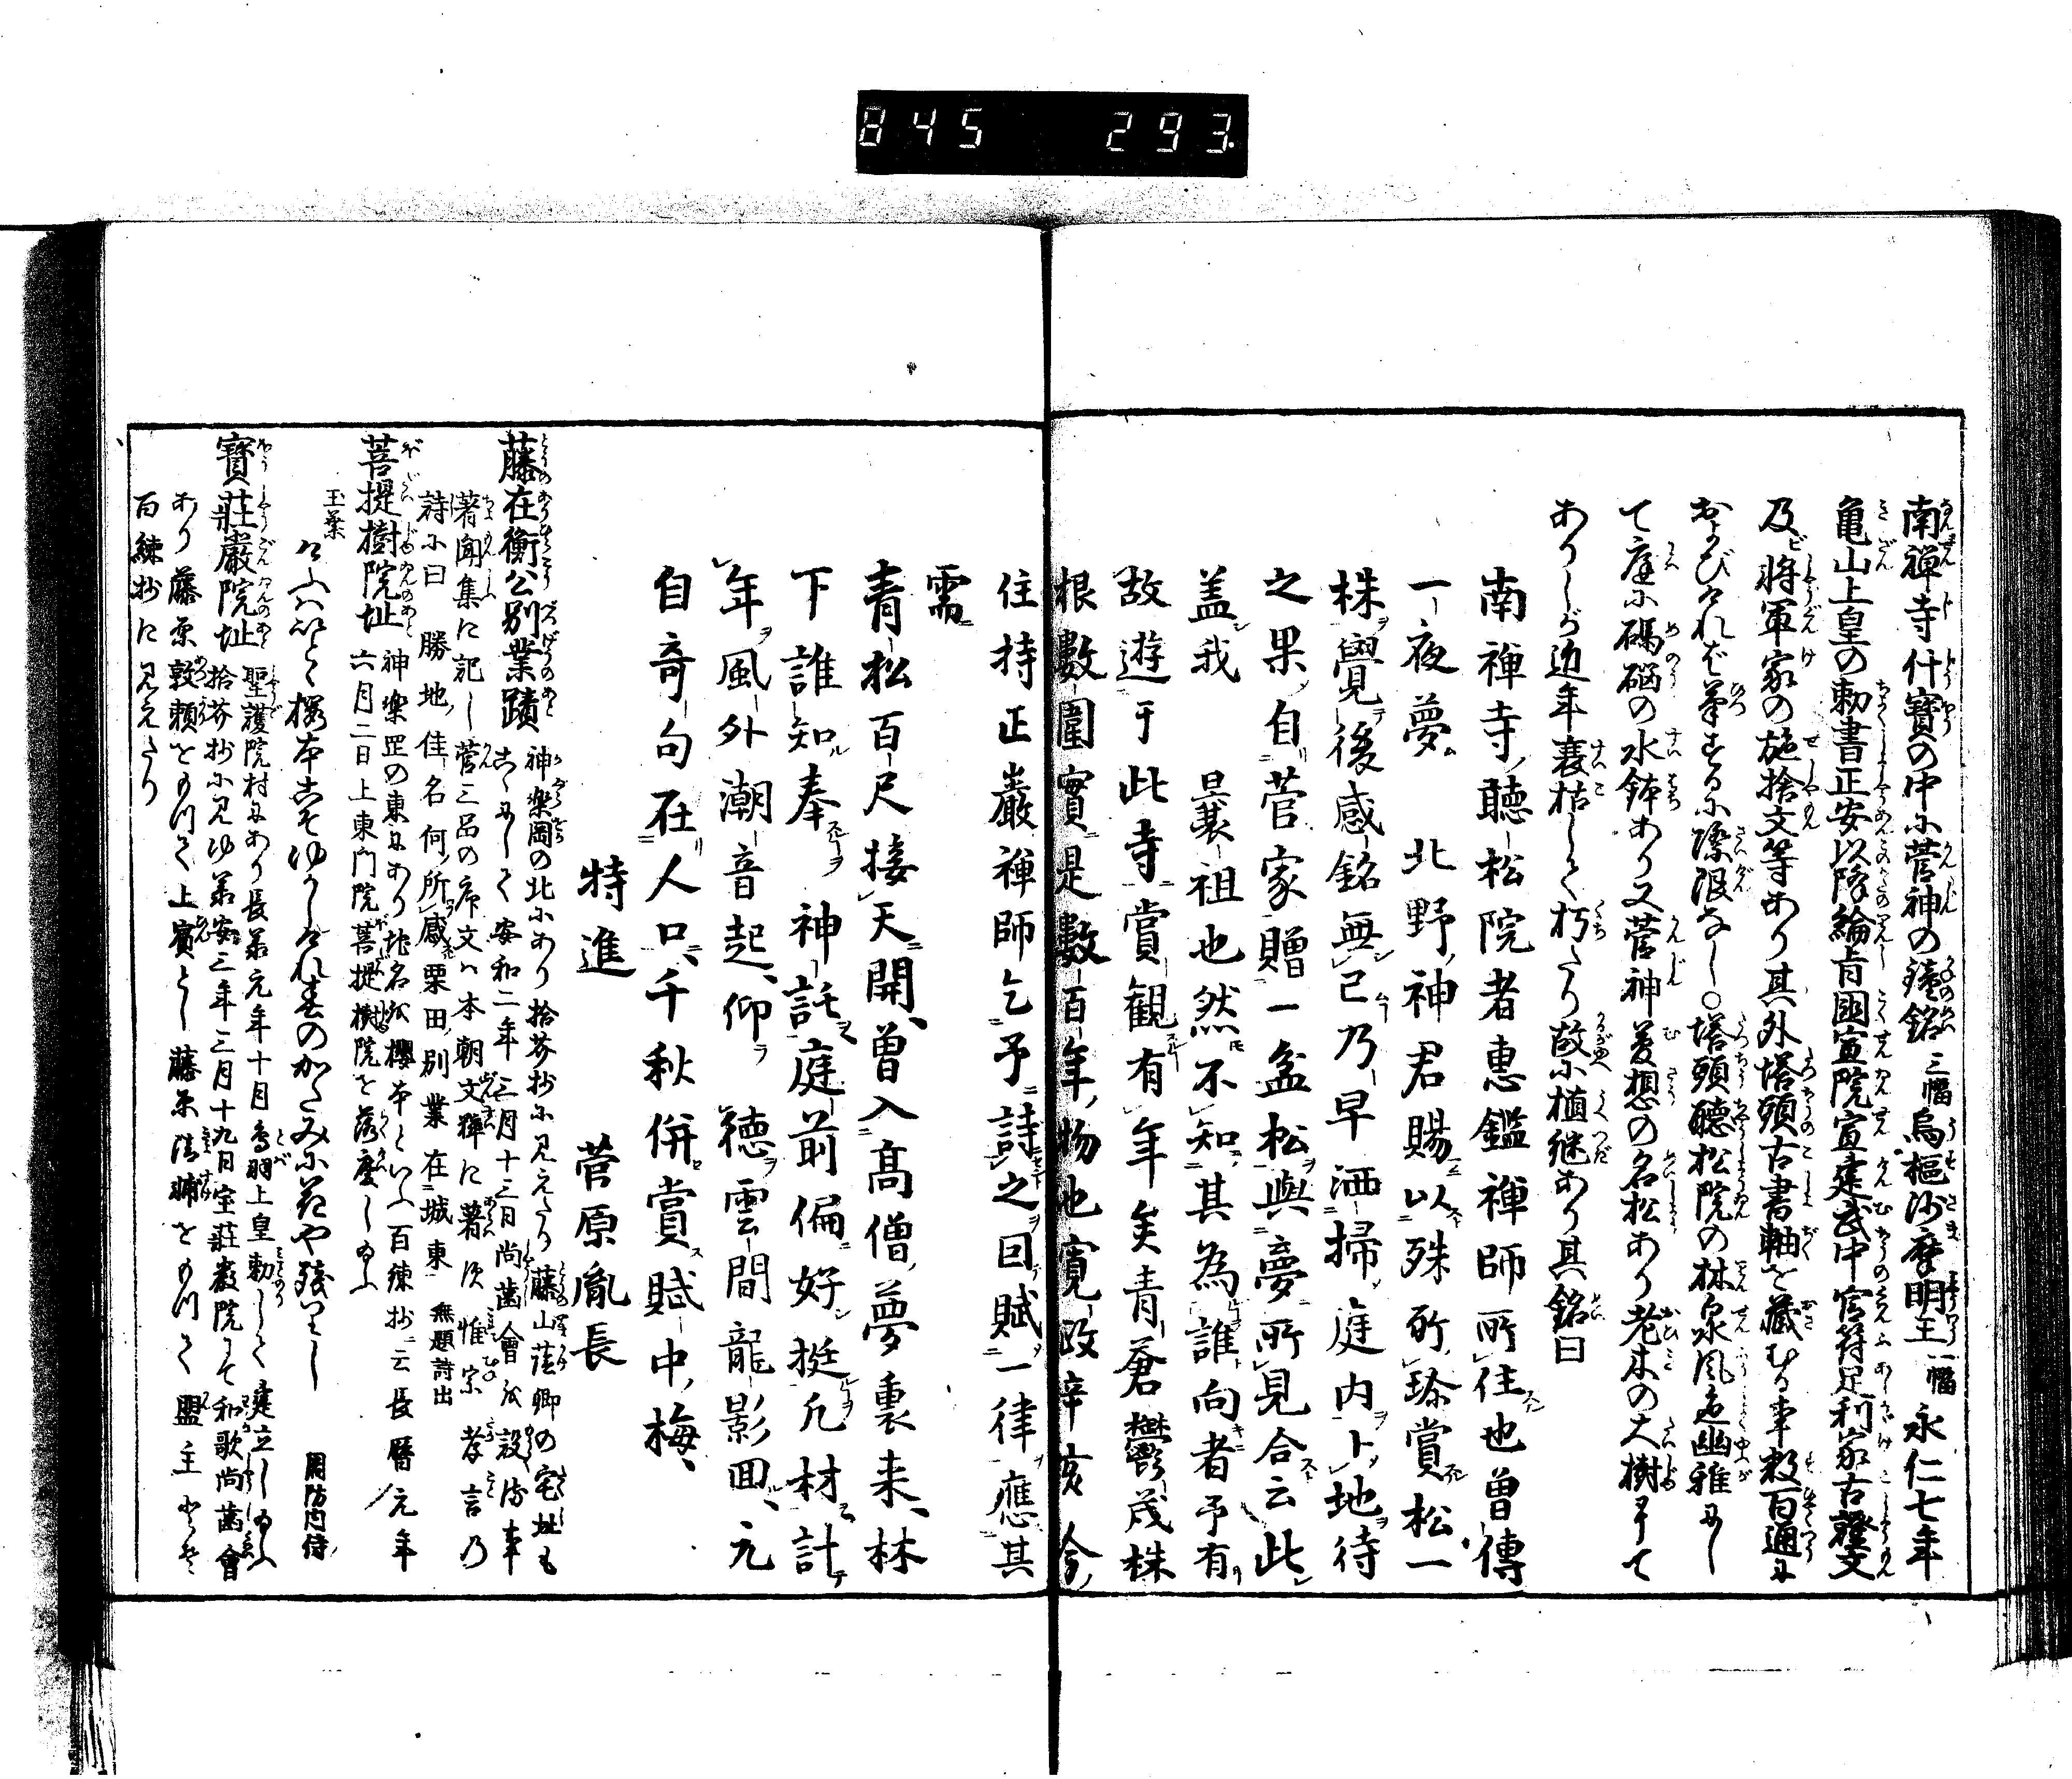 845 293
南禅寺什寶の中に菅神の鐘銘三幅烏樞沙摩明王一幅永仁七年
亀山上皇の勅書正安以降綸旨國宣院宣建武中官符足利家古證文
及ビ将軍家の施捨文等あり其外塔頭古書軸を藏むる事数百通に
およびければ筆するに際限なし○塔頭聽松院の林泉風色幽雅にし
て庭に碼碯の水鉢あり又菅神夢想の名松あり老木の大樹にて
ありしが近年衰枯して朽たり故に植継あり其銘曰
南禅寺聽松院者惠鑑禅師所住也曽傳
一夜夢 北野神君賜以殊所珎賞松一
株覺後感銘無已乃早洒掃庭内卜地待
之果自菅家贈一盆松與夢所見合云此
盖我 曩祖也然不知其為誰向者予有
故遊于此寺賞観有年矣青蒼鬱茂株
根數圍實是數百年物也寛政辛亥今
住持正巖禅師乞予詩之回賦一律應其
需
青松百尺接天開曽入髙僧夢裏来林
下誰知奉神託庭前偏好挺凢材計
年風外潮音起仰 德雲間龍影回元
自奇句在人口千秋併賞賦中梅
特進 菅原胤長
藤在衡公別業蹟 神樂岡の北にあり拾芥抄に見えたり藤山蔭卿の宅址も
こゝにして安和二年三月十三日尚齒會を設給事
著聞集に記し菅三品の序文は本朝文粹に著す惟宗孝言乃
詩に曰 勝地佳名何所感粟田別業在城東 無題詩出
菩提樹院址 神樂岡の東にあり地名を櫻本といふ百練抄ニ云長暦元年
六月二日上東門院菩提樹院を落慶し給ふ
玉葉
けふはいとゞ櫻本こそゆかしけれ春のかたみに花や残りし 周防内侍
寶莊嚴院址 聖護院村にあり長承元年十月鳥羽上皇勅して建立し給ふ
拾芥抄に見ゆ承安三年三月十九日宝莊嚴院にて和歌尚齒會
あり藤原敦頼をもつて上賓とし藤原清輔をもつて盟主とす
百練抄に見えたり